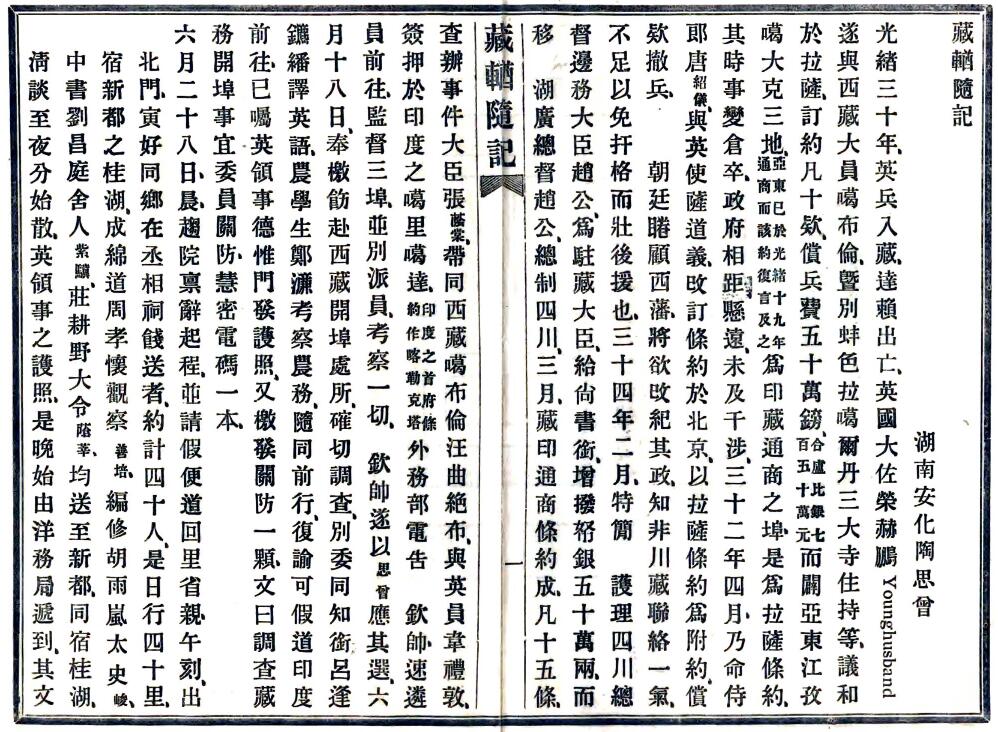 藏輶隨記
湖南安化陶思曾
光緒三十年、英兵入藏、達賴出亡、英國大佐榮赫鵬 Younghusband
遂與西藏大員噶布倫、曁別蚌色拉噶爾丹三大寺住持等、議和
於拉薩、訂約凡十欵、償兵費五十萬鎊、合盧比銀七百五十萬元而闢亞東江孜
噶大克三地、亞東已於光緒十九年通商而該約復言及之爲印藏通商之埠、是爲拉薩條約、
其時事變倉卒、政府相距懸遠、未及干涉、三十二年四月、乃命侍
郎唐紹儀、與英使薩道義、改訂條約於北京、以拉薩條約爲附約、償
欵撤兵、　朝廷睠顧西藩、將欲改紀其政、知非川藏聯絡一氣、
不足以免扞格而壯後援也、三十四年二月、特簡　護理四川總
督邊務大臣趙公、爲駐藏大臣、給尙書銜、增撥帑銀五十萬兩、而
移　湖廣總督趙公、總制四川、三月、藏印通商條約成、凡十五條、
藏輶隨記
一
查辦事件大臣張蔭棠、帶同西藏噶布倫汪曲絕布、與英員韋禮敦、
簽押於印度之噶里噶達、印度之首府條約作喀勒克塔外務部電告　欽帥、速遴
員前往、監督三埠、並別派員、考察一切、　欽帥遂以思曾應其選、六
月十八日、奉檄飭赴西藏開埠處所、確切調查、別委同知銜呂逢
鑣繙譯英語、農學生鄭濂考察農務、隨同前行、復諭可假道印度
前往、已囑英領事德惟門發護照、又檄發關防一顆、文曰調查藏
務開埠事宜委員關防、慧密電碼一本、
六月二十八日、晨趨院稟辭起程、並請假便道回里省親、午刻、出
北門、寅好同鄉在丞相祠餞送者、約計四十人、是日行四十里、
宿新都之桂湖、成綿道周孝懷觀察善培、編修胡雨嵐太史峻、
中書劉昌庭舍人紫驥、莊耕野大令蔭莘、均送至新都、同宿桂湖、
淸談至夜分始散、英領事之護照、是晚始由洋務局遞到、其文